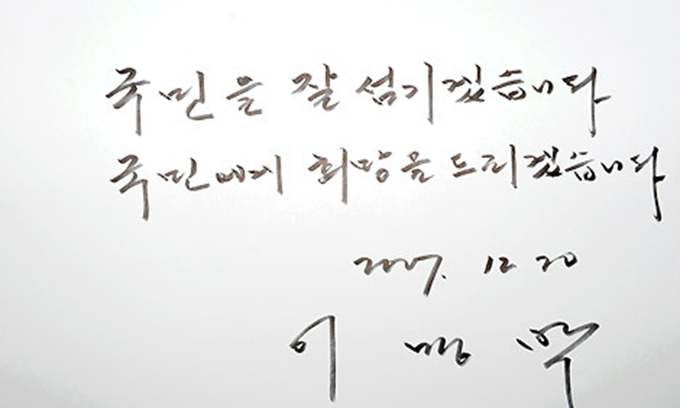 국민을 잘 섬기겠습니다
국민에게 희망을 드리겠습니다
2007. 12 20
이 명박